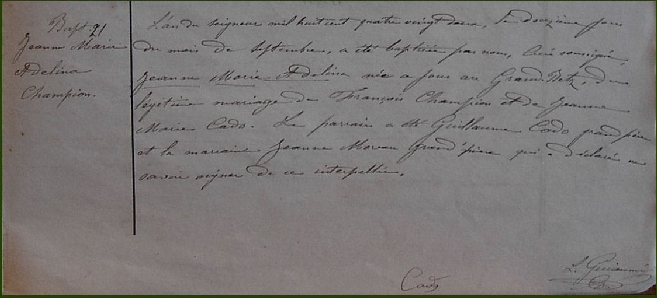 Bapt. 21
Jeanne Marie
Adelina
Champion.
L'an du seigneur mil huit cent quatre vingt deux, le douzième jour
du mois de septembre, a été baptisée par nous, curé soussigné,
Jeanne Marie Adelina née ce jour au Grand Betz, du
légitime mariage de François Champion et de Jeanne
Marie Cado. Le parrain a été Guillaume Cado grand père
et la marraine Jeanne Morvan Grand'mère qui a déclaré ne
savoir signer de ce interpellée.
Cado